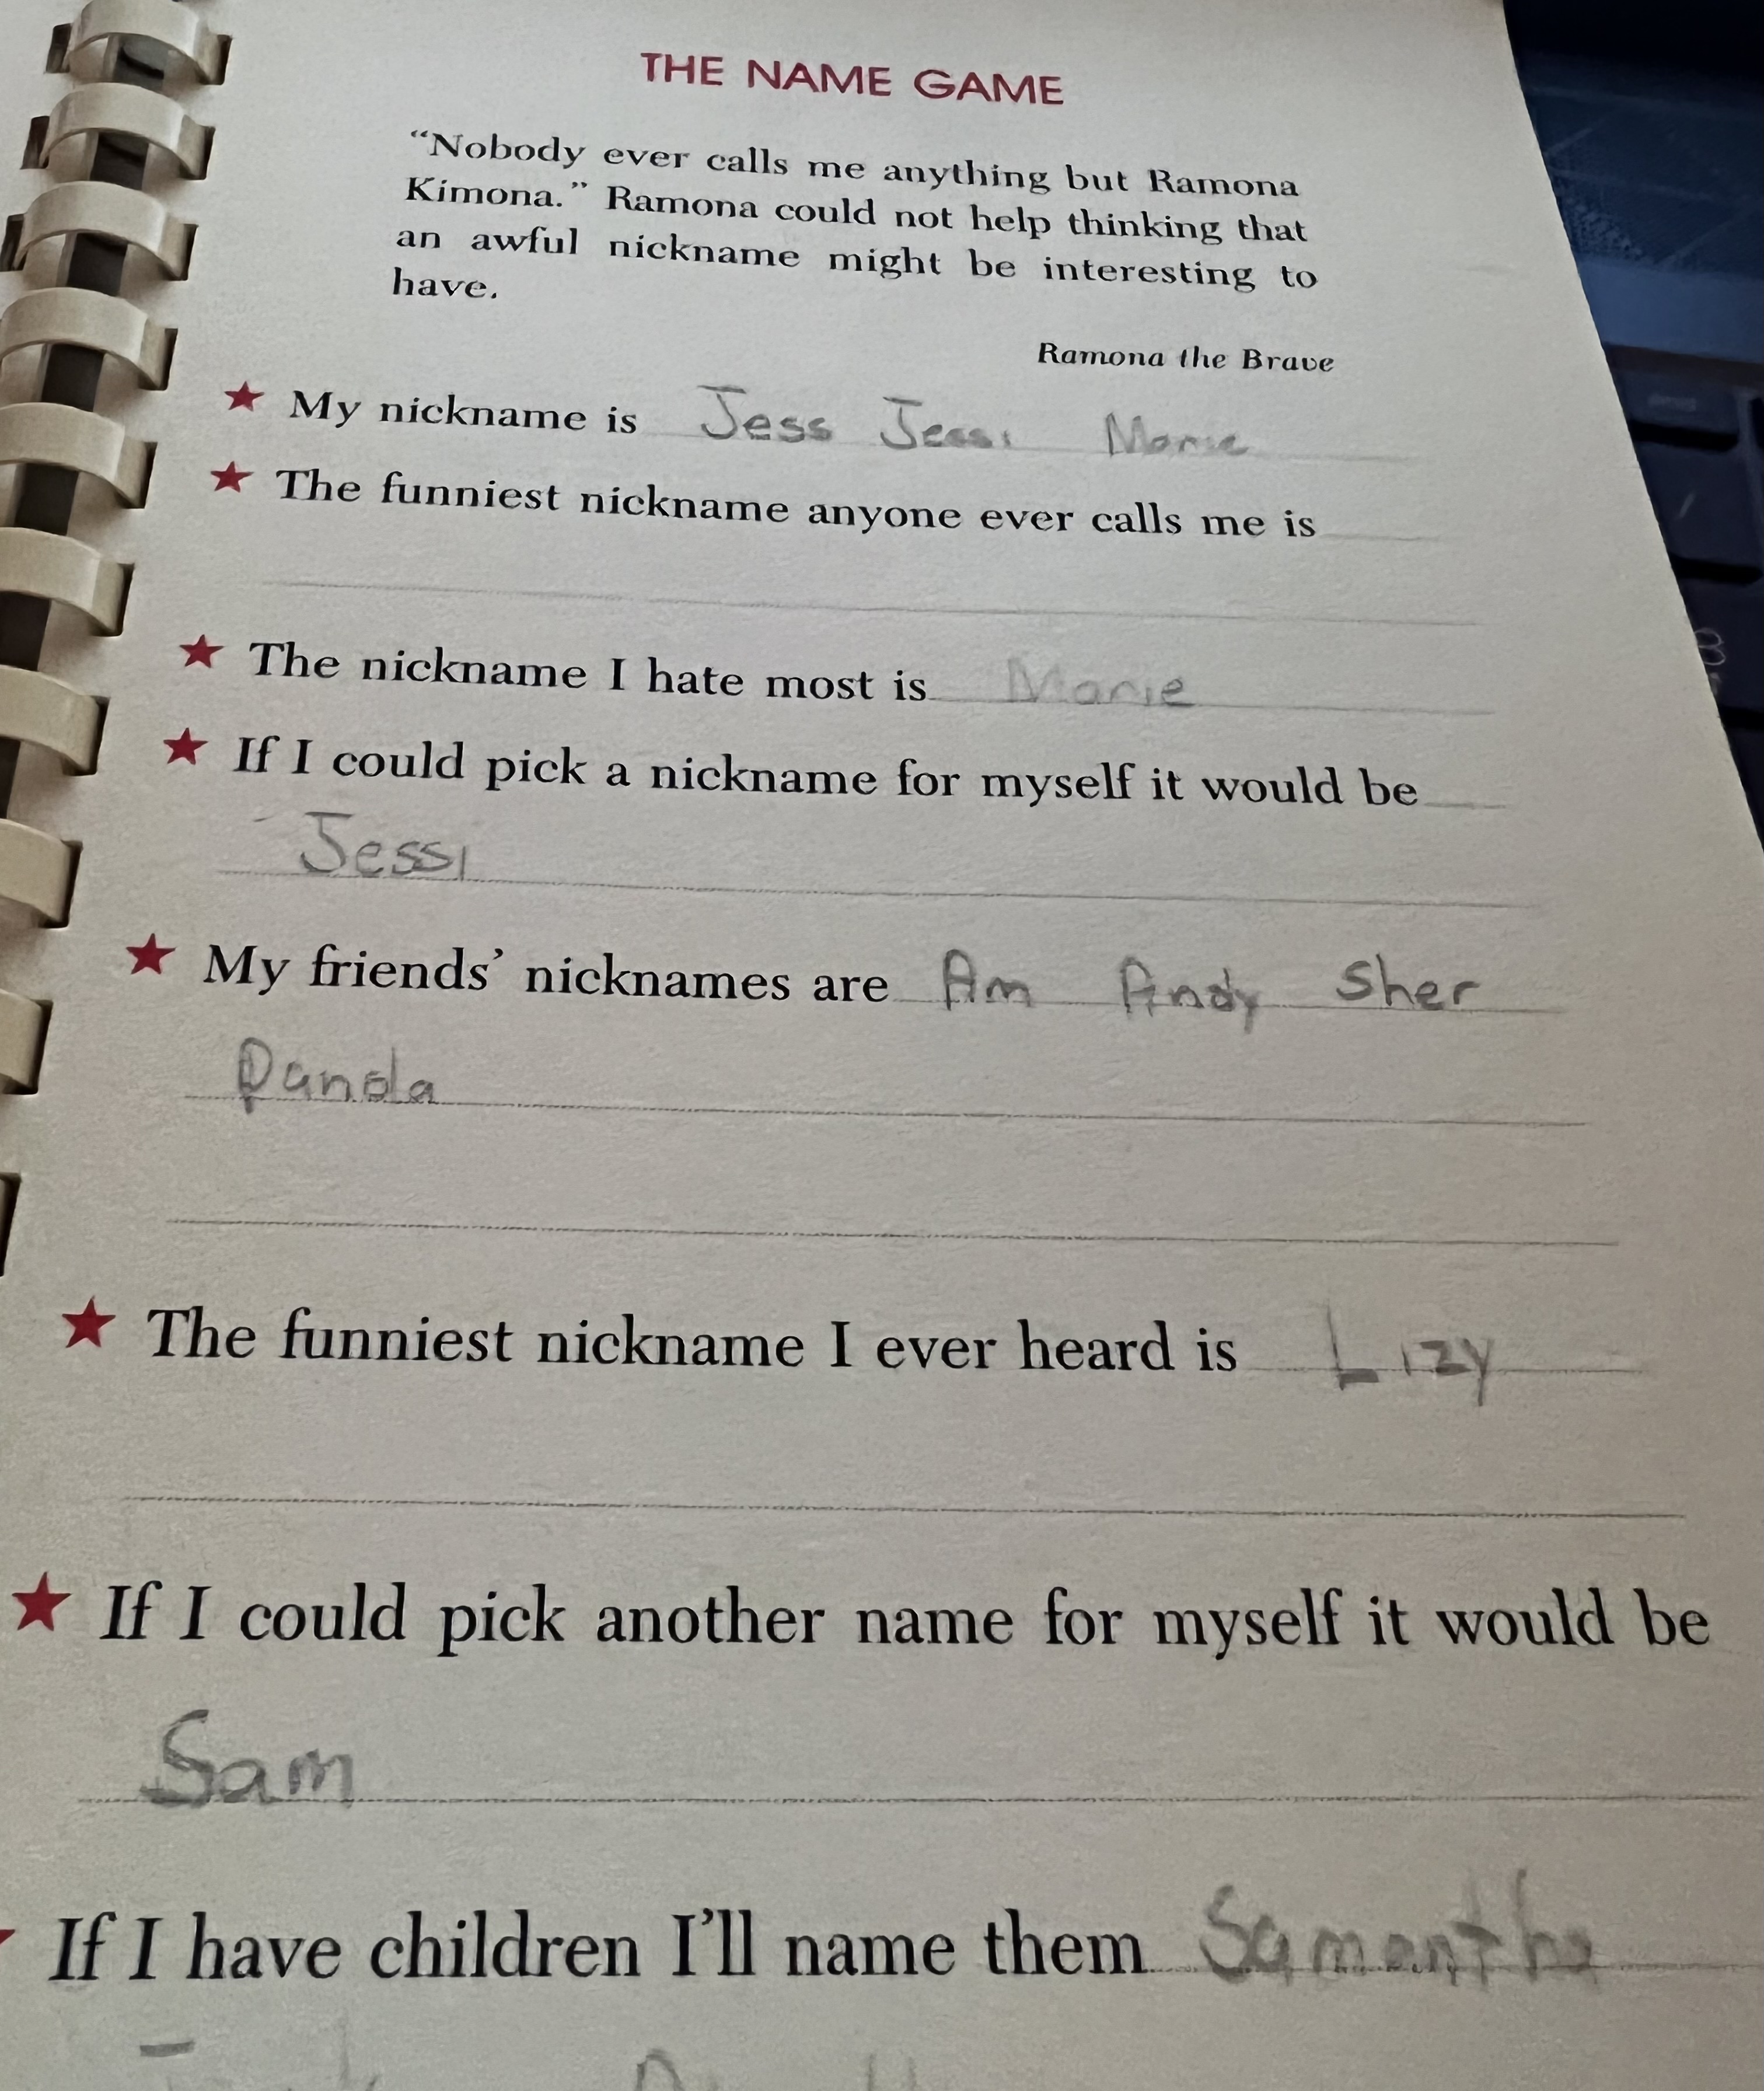 THE NAME GAME
“Nobody ever calls me anything but Ramona
Kimona.” Ramona could not help thinking that
an awful nickname might be interesting to
have.
Ramona the Brave
★ My nickname is Jess Jessi Marie
★ The funniest nickname anyone ever calls me is
★ The nickname I hate most is Marie
★ If I could pick a nickname for myself it would be
Jessi
★ My friends’ nicknames are Am Andy Sher
Panda
★ The funniest nickname I ever heard is Lizy
★ If I could pick another name for myself it would be
Sam
If I have children I’ll name them Samantha